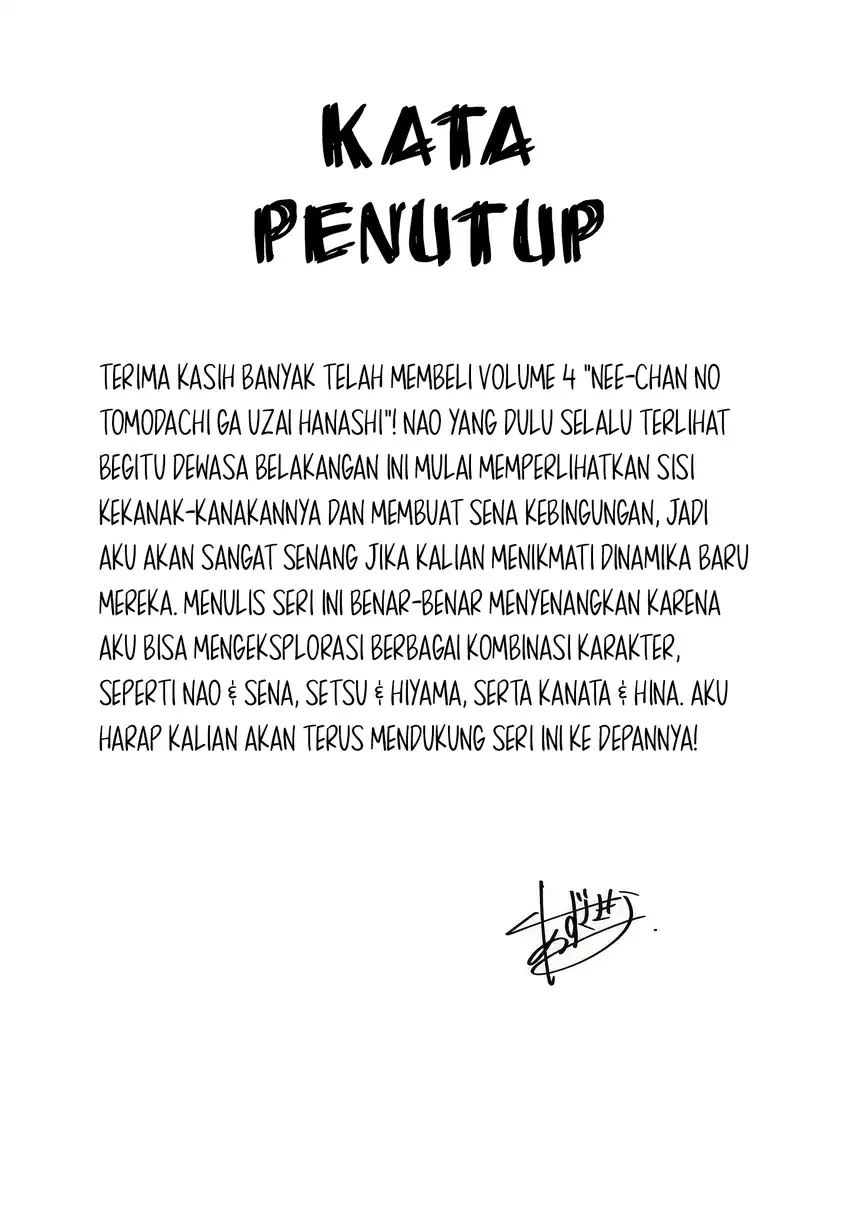 KATA
PENUTUP
TERIMA KASIH BANYAK TELAH MEMBELI VOLUME 4 "NEE-CHAN NO
TOMODACHI GA UZAI HANASHI"! NAO YANG DULU SELALU TERLIHAT
BEGITU DEWASA BELAKANGAN INI MULAI MEMPERLIHATKAN SISI
KEKANAK-KANAKANNYA DAN MEMBUAT SENA KEBINGUNGAN, JADI
AKU AKAN SANGAT SENANG JIKA KALIAN MENIKMATI DINAMIKA BARU
MEREKA. MENULIS SERI INI BENAR-BENAR MENYENANGKAN KARENA
AKU BISA MENGEKSPLORASI BERBAGAI KOMBINASI KARAKTER,
SEPERTI NAO & SENA, SETSU & HIYAMA, SERTA KANATA & HINA. AKU
HARAP KALIAN AKAN TERUS MENDUKUNG SERI INI KE DEPANNYA!